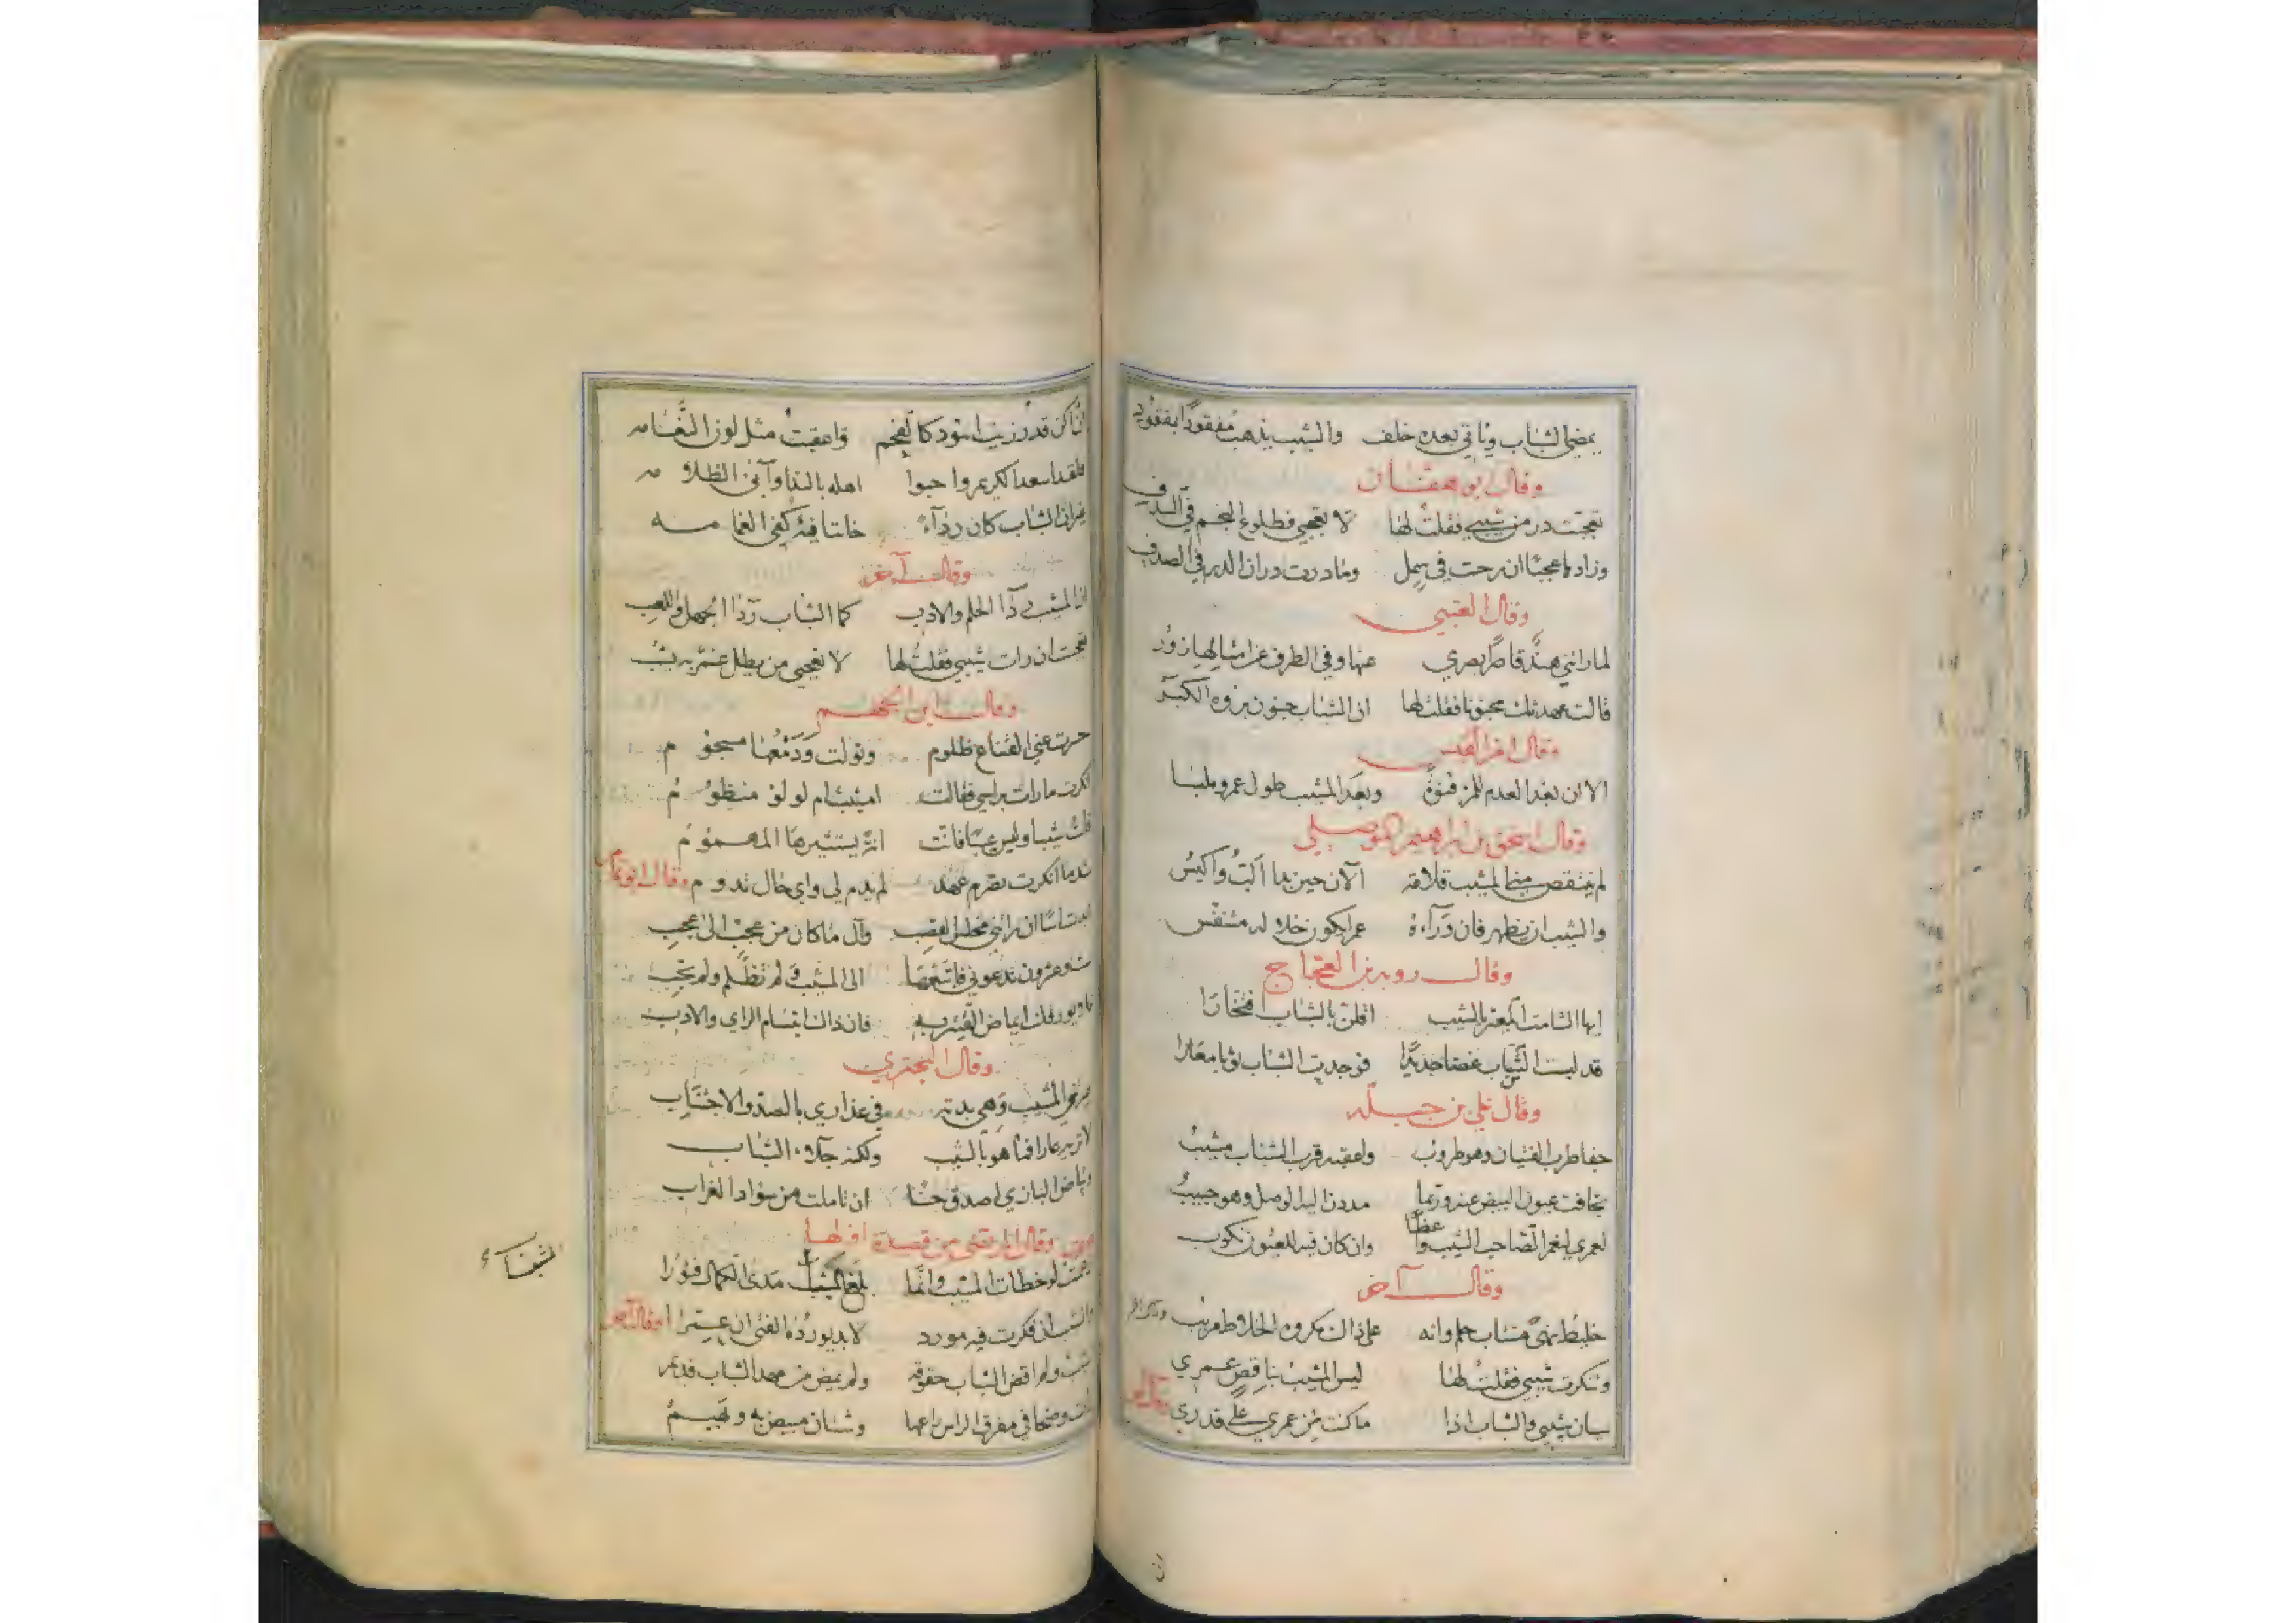 يمضي الشباب وياتي بعده خلف والشيب يذهب مفقودا بمفقود
وقال ابو هفان
تعجبت در من شيبي فقلت لها لا تعجبي فطلوع النجم في السدف
وزادها عجبا ان رحت في سمل وما درت در ان الدر في الصدف
وقال العتبي
لما راتني هند قاصرا بصري عنها وفي الطرف عن امثالها زور
قالت عهدتك مجنونا فقلت لها ان الشباب جنون بروه الكبر
وقال امرؤ القيس
الا ان بعد العدم للمرء قنوة وبعد المشيب طول عمر وملبسا
وقال اسحق بن ابراهيم الموصلي
لم ينتقص مني المشيب قلامة الآن حين بدا الب واكيس
والشيب ان يظهر فان وراءه عمرا يكون خلاله متنفس
وقال روبه بن العجاج
ايها الشامت المعير بالشيب اقلن بالشباب افتخارا
قد لبست الشباب غضا جديدا فوجدت الشباب ثوبا معارا
وقال علي بن جبلة
جفا طرب الفتيان وهو طروب واعقبه قرب الشباب مشيب
تجافت عيون البيض عنه وربما مددن اليه الوصل وهو حبيب
لعمري لنعم الصاحب الشيب واعظا وان كان فيه للعيون نكوب
وقال آخر
خليط نهى منتاب حلم وانه على ذاك مكروه الخلاط مريب
وتنكرت شيبي فقلت لها ليس المشيب بناقص عمري
سيان شيبي والشباب اذا ما كنت من عمري على قدري
ان
كن قدر زينب اسود كالفحم واعقبت مثل لون الثغامه
اسعد الكريم واحبوا اهله بالندا وآبى الظلامه
غير ان الشباب كان رداء خاننا فيئه كفيء الغمامه
وقال آخر
ان المشيب رداء الحلم والادب كما الشباب رداء الجهل واللعب
تعجبت ان رات شيبي فقلت لها لا تعجبي من يطل عمر به يشب
وقال ابن الجهم
حسرت عني القناع ظلوم وتولت ودمعها مسجوم
انكرت ما رات براسي فقالت امشيب ام لؤلؤ منظوم
قلت شيبا وليس عيبا فانت انة يستثيرها المهموم
شد ما انكرت تصرم عهد لم يدم لي واي حال تدوم وقال ابو تمام
ان راتني مخلس القصب وآل ما كان من عجب الى عجب
ست وعشرون تدعوني فاتبعها الى المشيب ولم تظلم ولم تحب
ايماض القتير به فان ذاك ابتسام الراي والادب
وقال البحتري
المشيب وهي بدته في عذاري بالصد والاجتناب
لا تريه عارا فما هو بالشيب ولكنه جلاء الشباب
وبياض البازي اصدق حسنا ان تاملت من سواد الغراب
وقال المرتضى من قصيدة اولها
لوخطات المشيب وانما بلغ الشباب مدى الكمال فنورا
الشباب
والشيب ان فكرت فيه مورد لا بد يورده الفتى ان عمرا وقال آخر
شبت ولم اقض الشباب حقوقه ولم يمض من عهد الشباب قديم
وضحا في مفرق الراس راعها وشتان مبيض به وبهيم